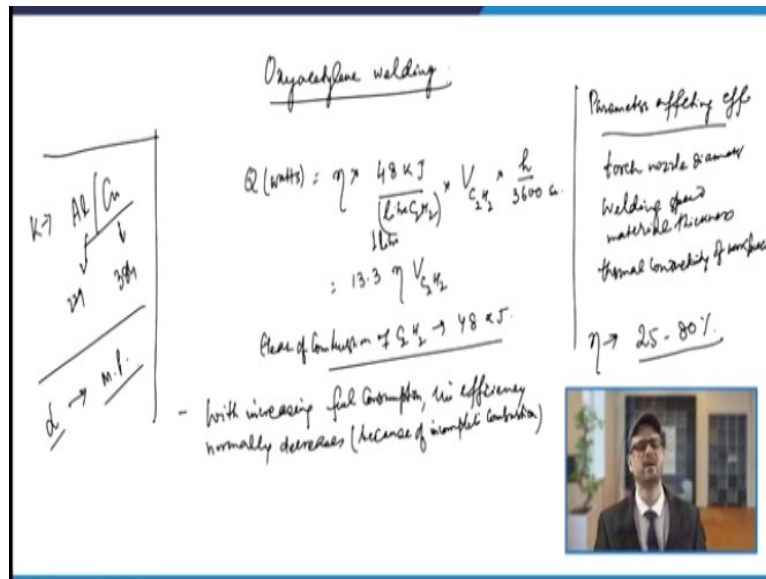 Oxyacetylene welding.
K → Al | Cu
229 384
α → m.p.
Q (watts) = η × 48 KJ / (litre C2H2) × V C2H2 × h / 3600 sec.
1 litre
= 13.3 η V C2H2
Heat of Combustion of C2H2 → 48 KJ.
- With increasing fuel consumption, the efficiency
normally decreases (because of incomplete combustion)
Parameters affecting eff
torch nozzle diameter
Welding speed
material thickness
thermal conductivity of workpiece
η → 25-80%.